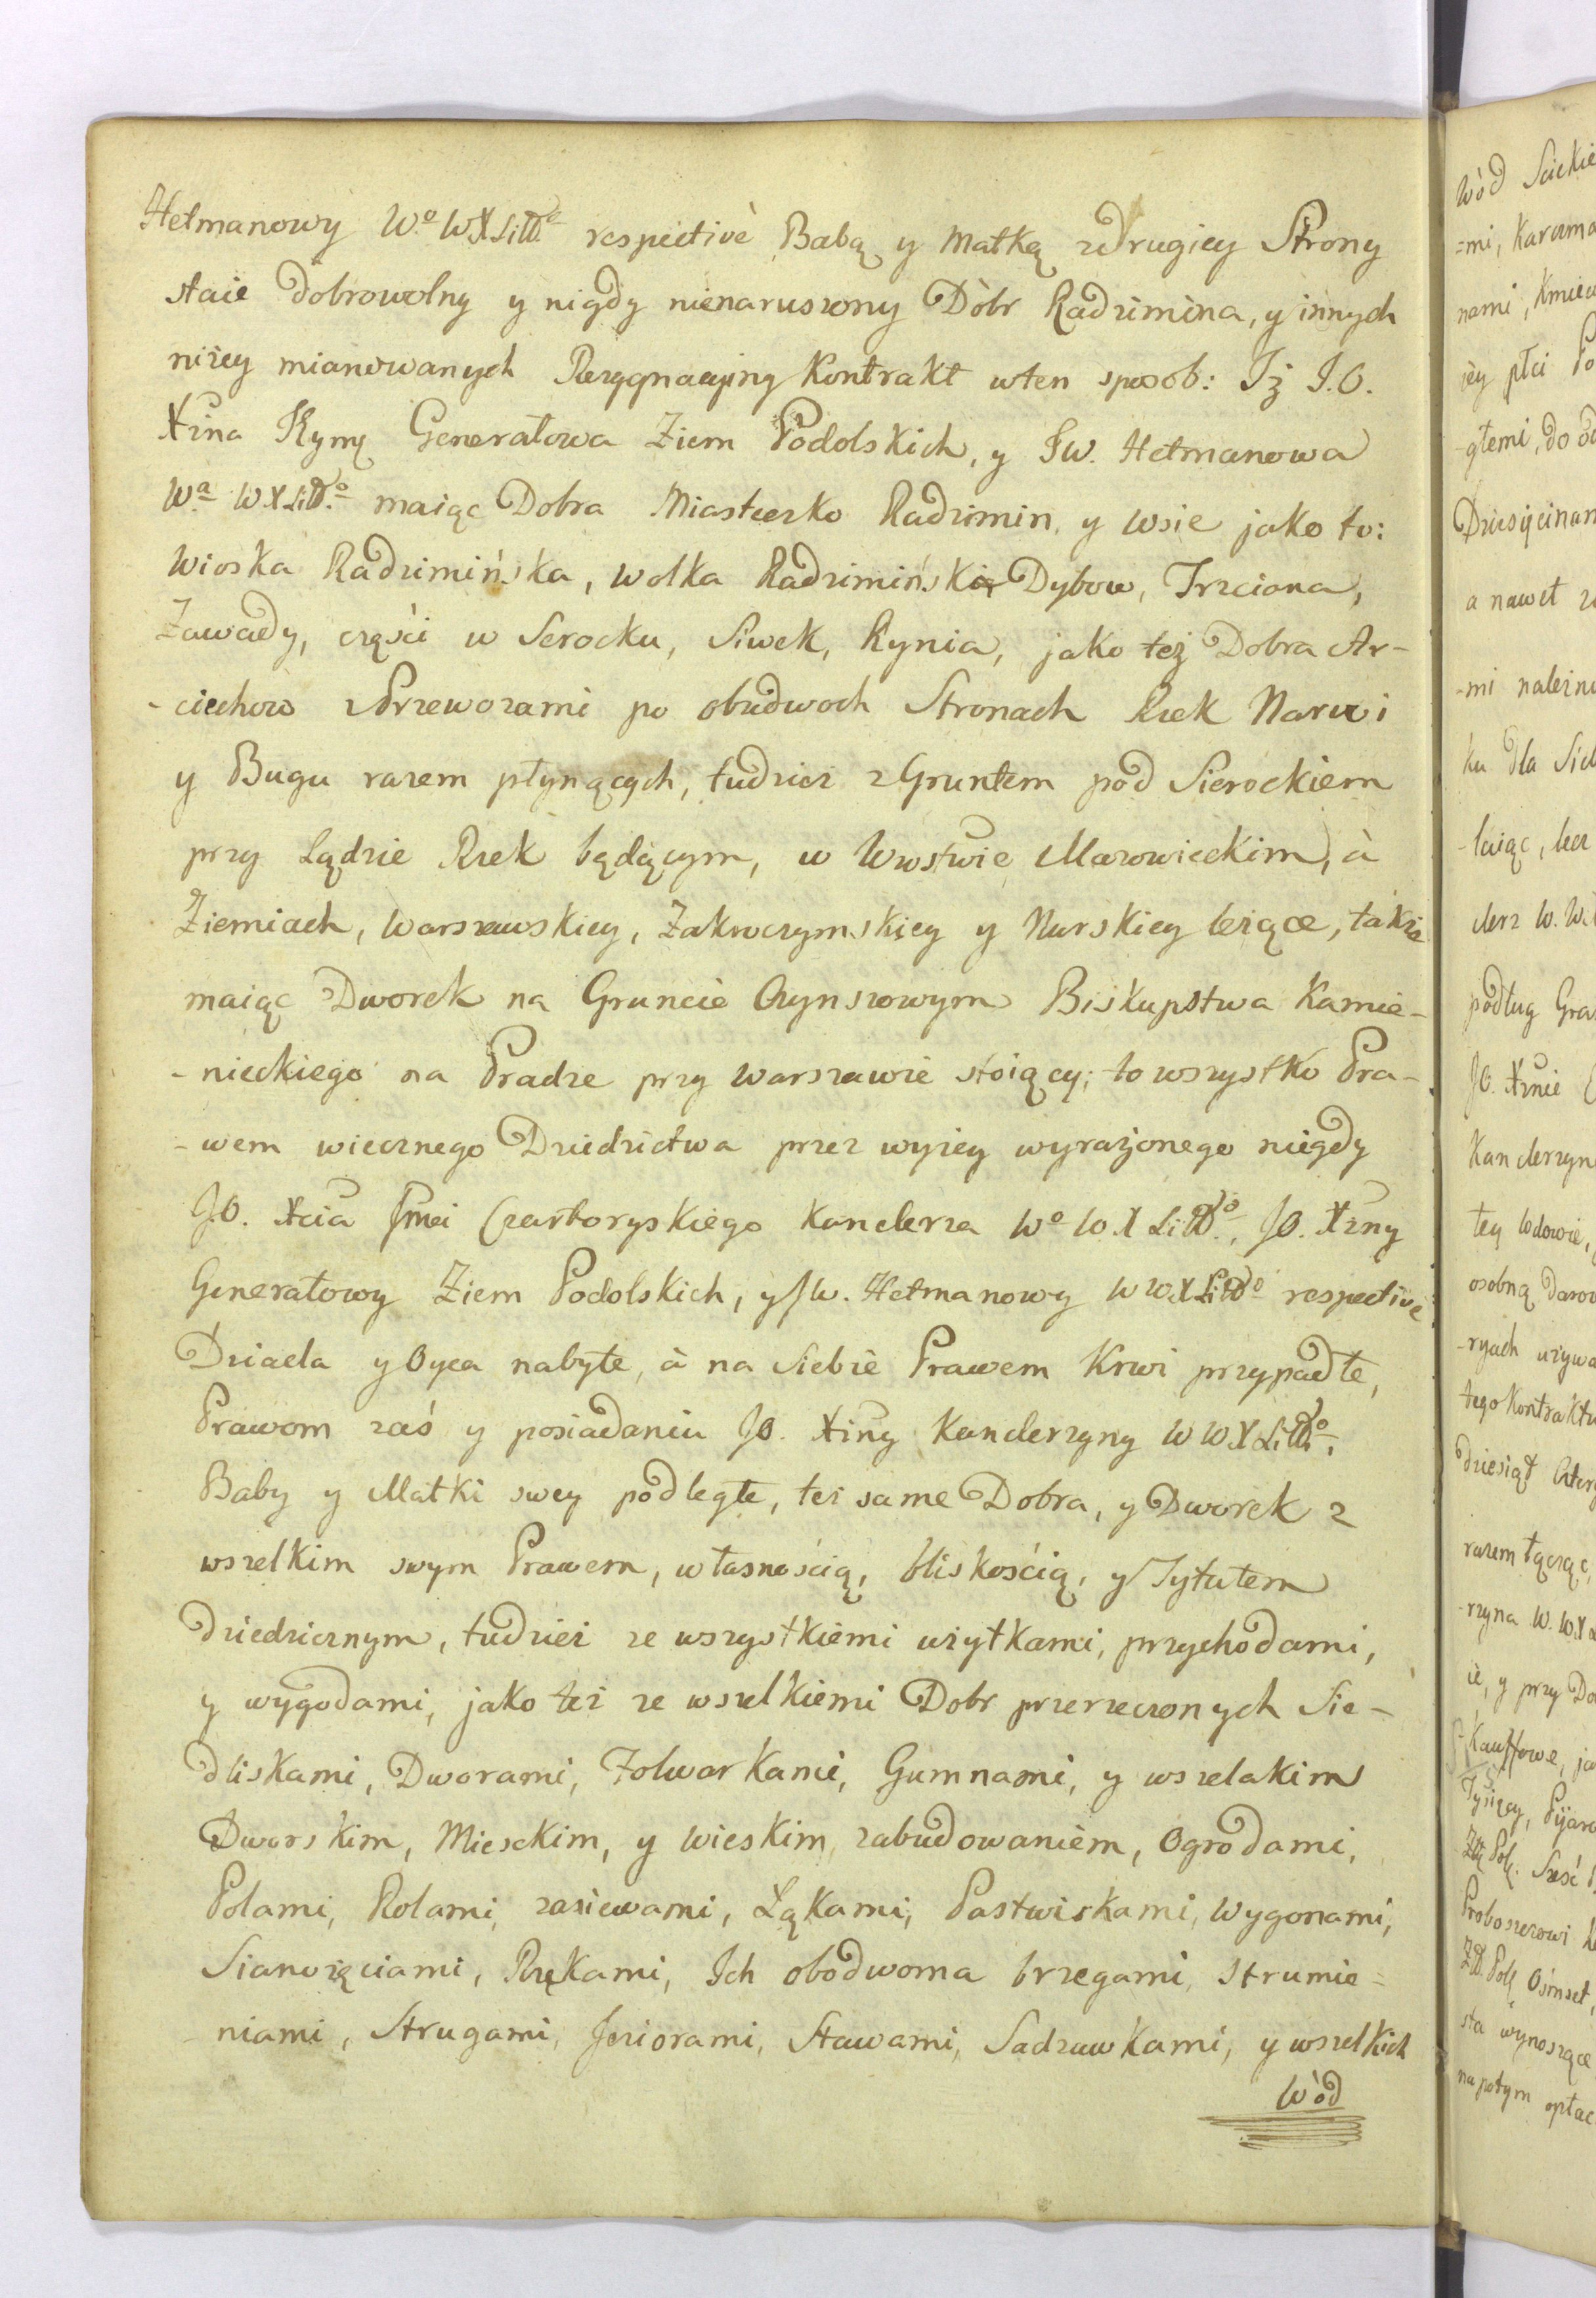 Hetmanowy W.º W.X.Litt.º respectivè Babą y Matką zdrugiey Strony
staie dobrowolny y nigdy nienaruszony Dòbr Radzimina, y innych
niżey mianowanych Rezygnacyiny Kontrakt wten sposob: Iż J.O.
Xżna Jeymę Generałowa Ziem Podolskich, y JW. Hetmanowa
W.ª W.X.Litt.º maiąc Dobra Miasteczko Radzimin, y wsie jako to:
Wioska Radzimińska, Wolka Radzimińska Dybow, Trzciana,
Zawady, części w Serocku, Siwek, Rynia, jako też Dobra Ar-
-ciechow zPrzewozami po obudwoch Stronach Rzek Narwi
y Bugu razem płynących, tudzież zGruntem pod Sierockiem
przy Lądzie Rzek będącym, w Wwstwie Mazowieckim, à
Ziemiach, Warszawskiey, Zakroczymskiey y Nurskiey leżące, także
maiąc Dworek na Gruncie Czynszowym Biskupstwa Kamie-
-nieckiego na Pradze przy Warszawie stoiący; to wszystko Pra-
-wem wiecznego Dziedzictwa przez wyżey wyrażonego niegdy
J.O. Xcia Jmci Czartoryskiego Kanclerza Wº W.X Litt.º, JO. Xżny
Generałowy Ziem Podolskich, y JW. Hetmanowy W W.X Littº respectivè
Dziada y Oyca nabyte, à na Siebie Prawem Krwi przypadłe,
Prawom zaś y posiadaniu JO. Xżny Kanclerzyny W W.X Litt.º,
Baby y Matki swey podległe, też same Dobra, y Dworek z
wszelkim swym Prawem, własnością, bliskością, y Tytułem
dziedzicznym, tudzież ze wszystkiemi użytkami, przychodami,
y wygodami, jako też ze wszelkiemi Dobr przerzeczonych Sie-
dliskami, Dworami, Folwarkami, Gumnami, y wszelakim
Dworskim, Mieskim, y wieskim zabudowaniem, Ogrodami,
Polami, Rolami, zasiewami, Łąkami, Pastwiskami, Wygonami,
Sianożęciami, Rzekami, Ich obodwoma brzegami, Strumie-
niami, Strugami, Jeziorami, Stawami, Sadzawkami, y wszelkich
Wód